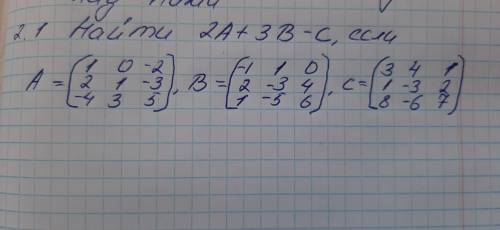 2.1 Найти 2A+3B-C, если
A = (1 0 -2
2 1 -3
-4 3 5), B = (-1 1 0
2 -3 4
1 -5 6), C = (3 4 1
1 -3 2
8 -6 7)